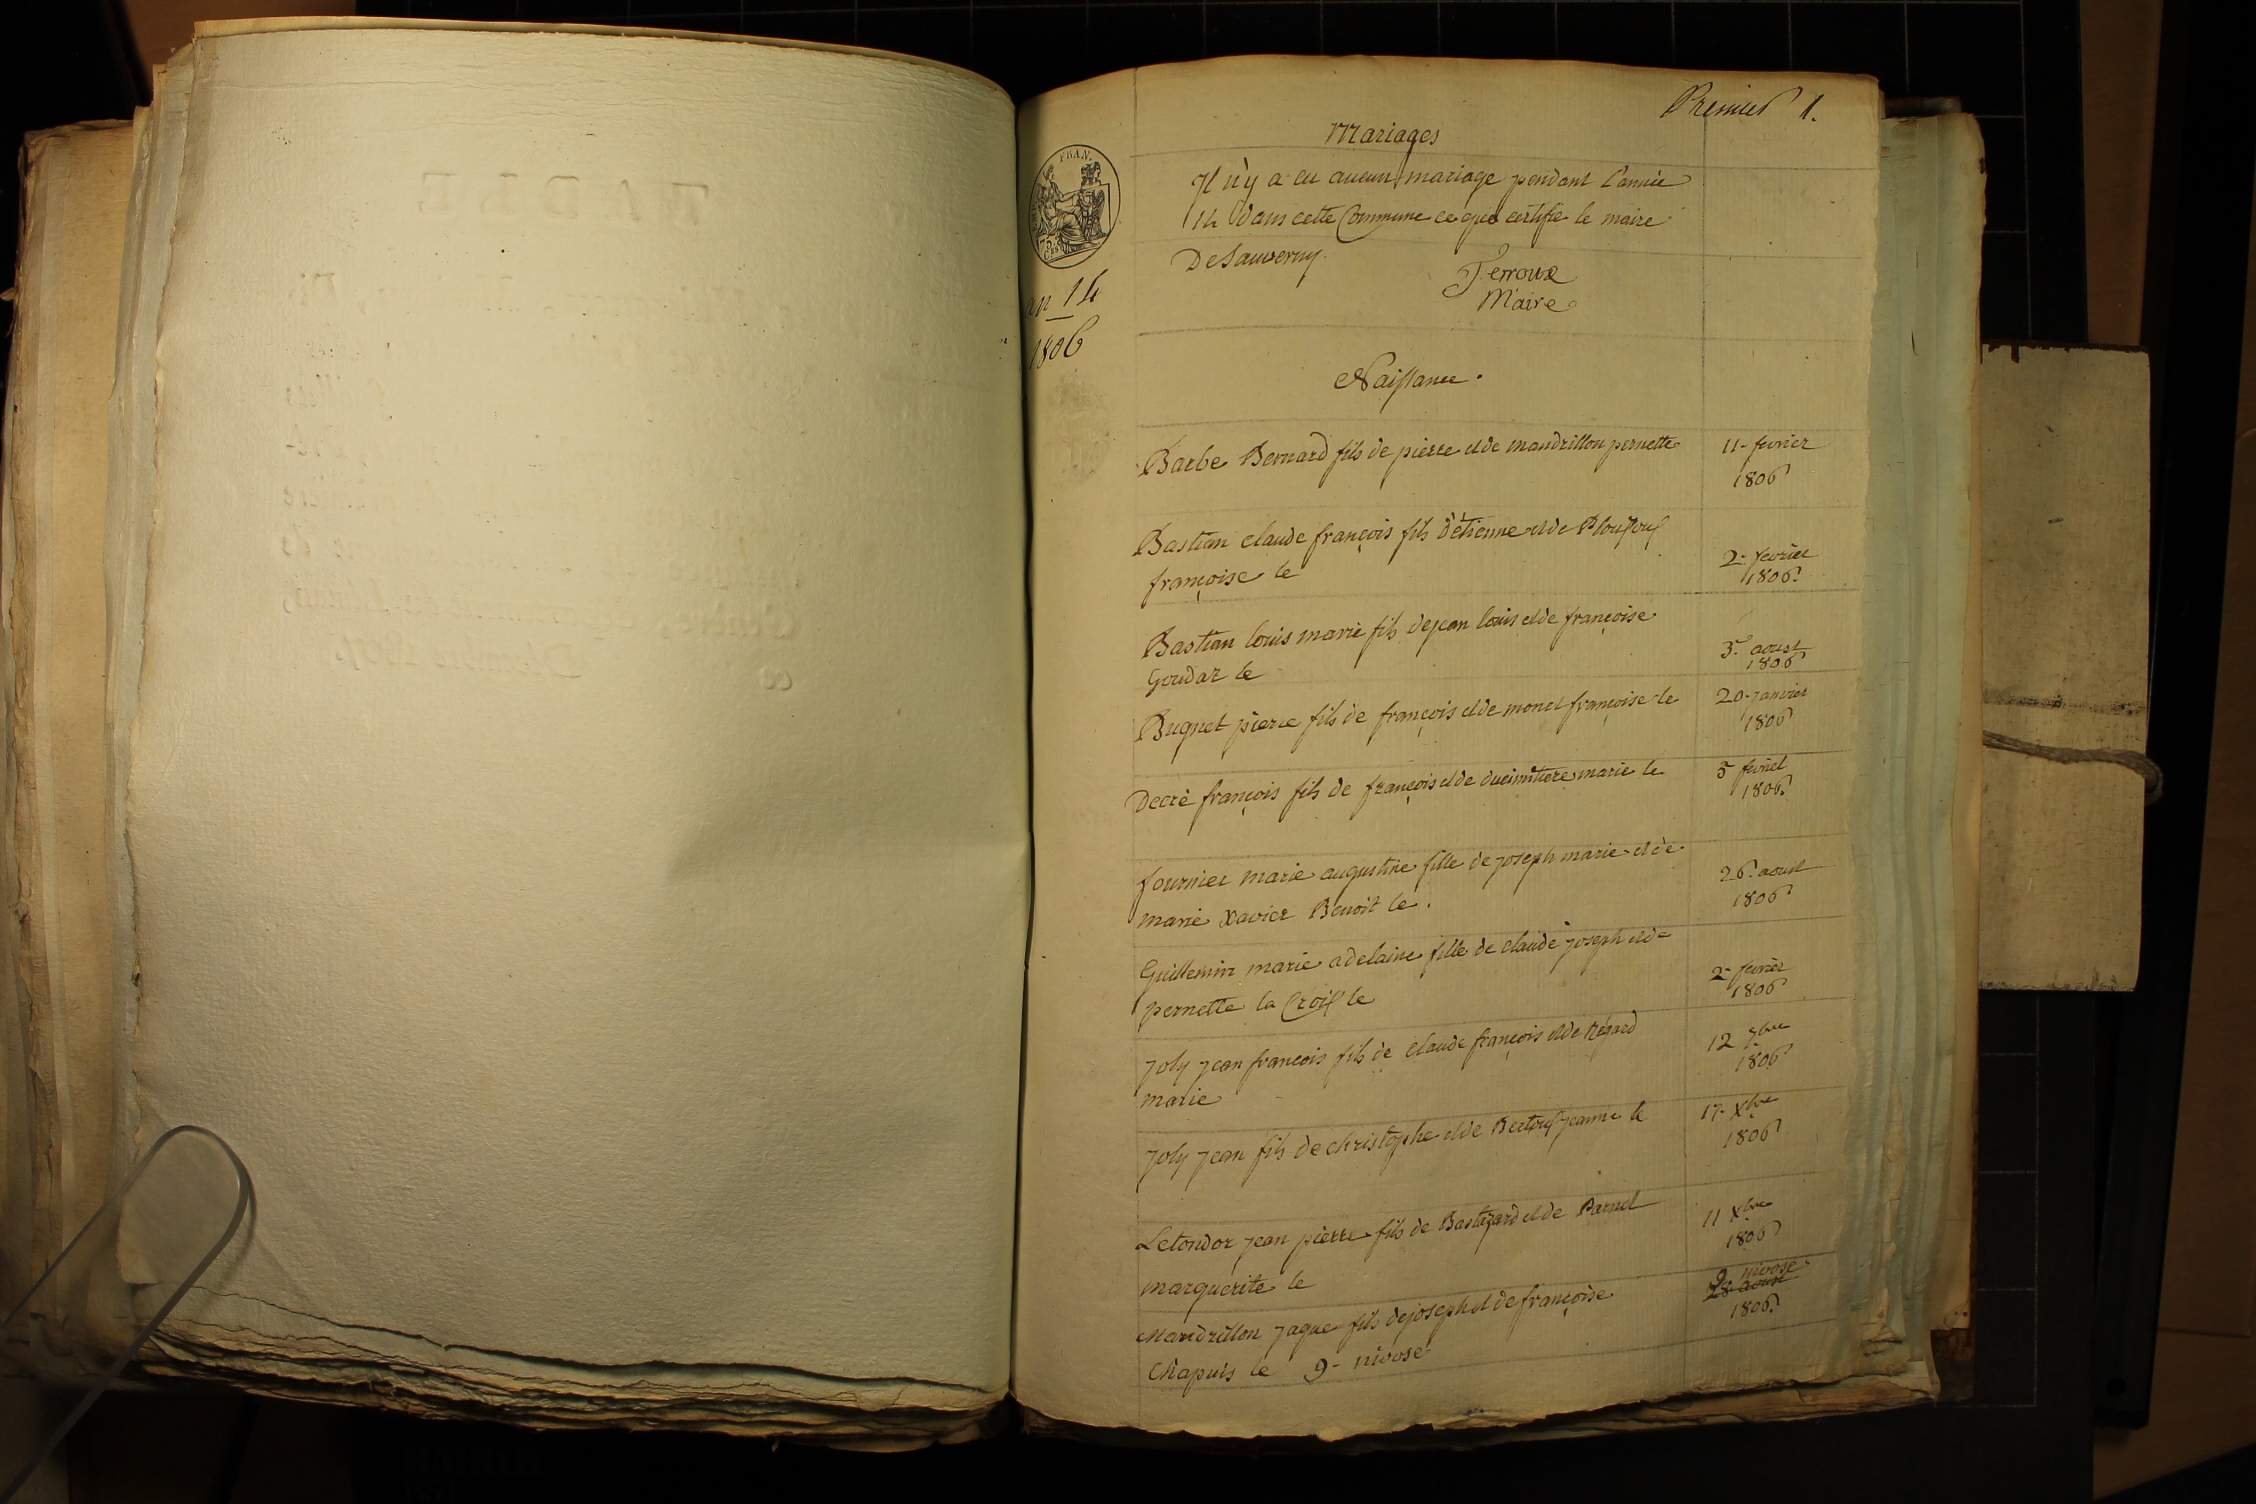 TABLE
Premier 1.
Mariages
FRAN.
Il n'y a eu aucun mariage pendant l'année
14 dans cette Commune ce que certifie le maire
De Sauverny.
Perroux
Maire
an 14
1806
Naissance.
Barbe Bernard fils de pierre et de mandrillon pernette 11- fevrier
1806
Bastian claude françois fils d'étienne et de
françoise le 2- fevrier
1806.
Bastian louis marie fils de jean louis et de françoise
Goudar le 3- aoust
1806
Buquet pierre fils de françois et de monet françoise le 20- janvier
1806
Decré françois fils de françois et de ducimitiere marie le 5 fevrier
1806.
fournier marie augustine fille de joseph marie et de
marie Xavier Benoit le . 26. aoust
1806
Guillemin marie adelaine fille de claude joseph et de
pernette la Croix le 2- fevrier
1806
Joly jean francois fils de claude françois et de Regard
marie 12 7bre
1806
Joly jean fils de christophe et de jeanne le 17- Xbre
1806
Letondor jean pierre fils de et de
marguerite le 11 Xbre
1806
Mandrillon jaque fils de joseph et de françoise 9 nivose
28 aoust
Chapuis le 9- nivose 1806.